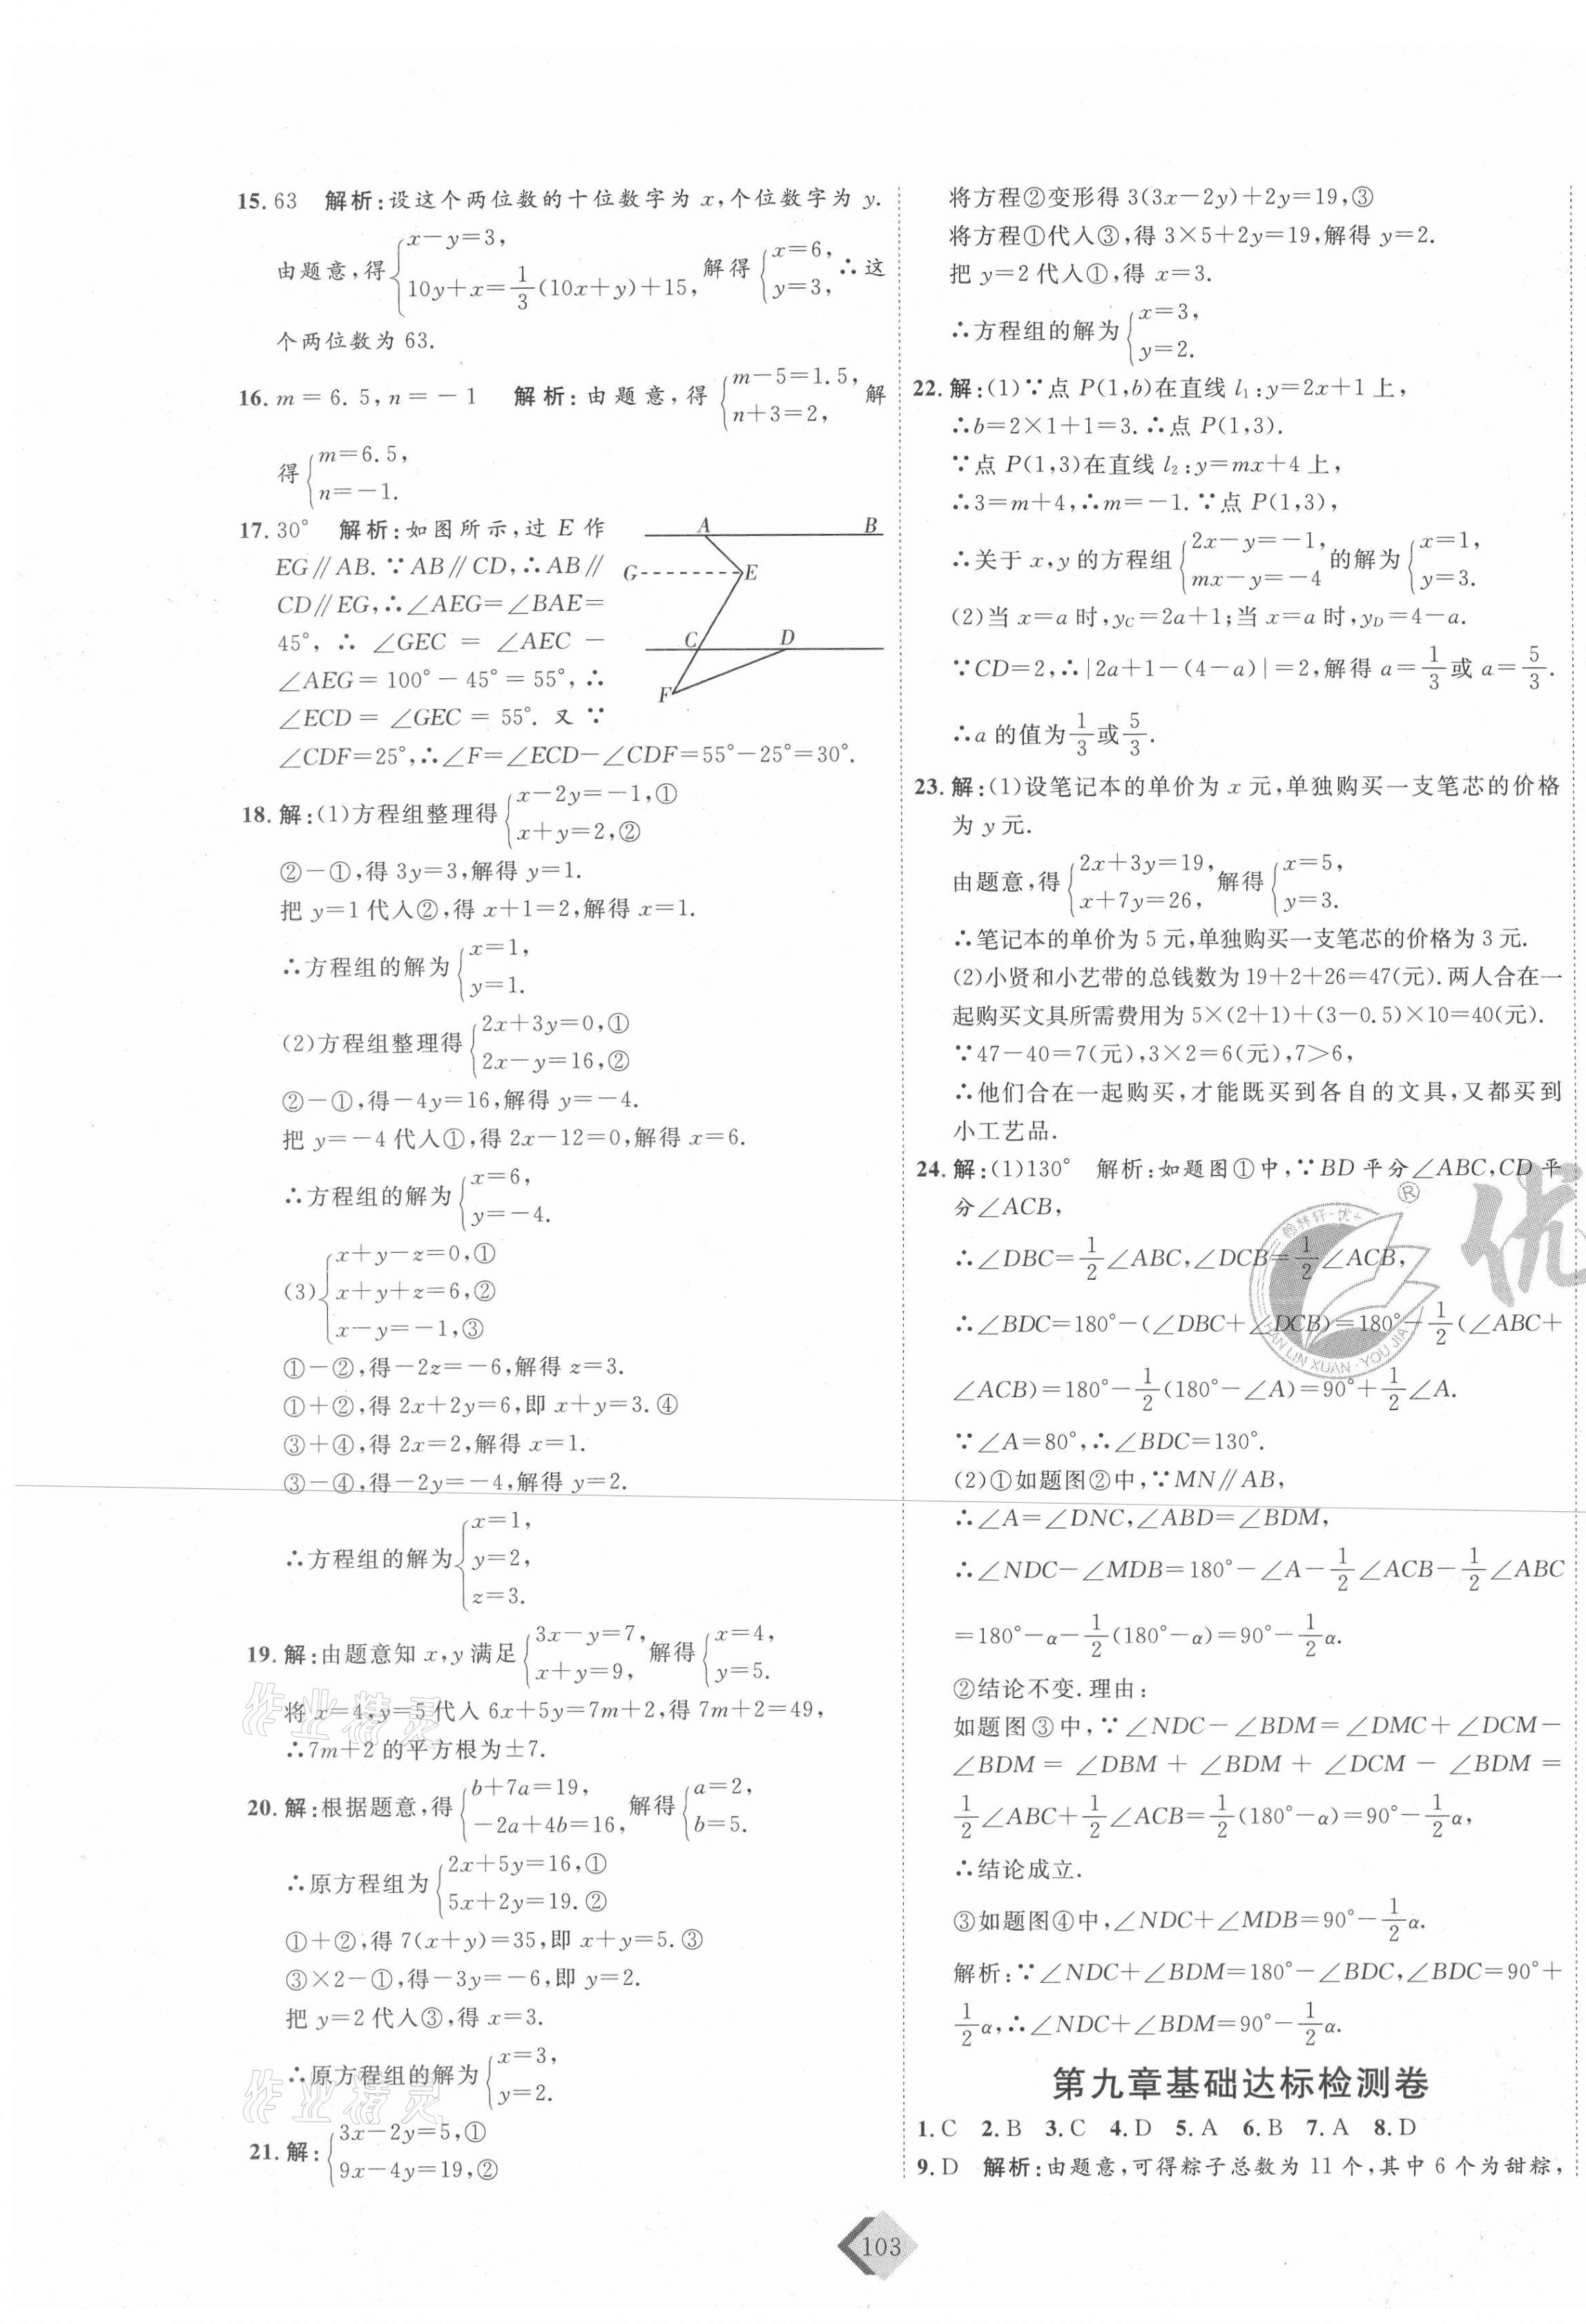 15. 63 解析:设这个两位数的十位数字为 x,个位数字为 y.
由题意,得{x-y=3, 10y+x=1/3(10x+y)+15, 解得{x=6, y=3, ∴这
个两位数为 63.
16. m=6.5,n=-1 解析:由题意,得{m-5=1.5, n+3=2, 解
得{m=6.5, n=-1.
17. 30° 解析:如图所示,过 E 作
EG∥AB.∵AB∥CD,∴AB∥
CD∥EG,∴∠AEG=∠BAE=
45°,∴∠GEC=∠AEC-
∠AEG=100°-45°=55°,∴
∠ECD=∠GEC=55°.又∵
∠CDF=25°,∴∠F=∠ECD-∠CDF=55°-25°=30°.
A B
G E
C D
F
18. 解:(1)方程组整理得{x-2y=-1,① x+y=2,②
②-①,得 3y=3,解得 y=1.
把 y=1 代入②,得 x+1=2,解得 x=1.
∴方程组的解为{x=1, y=1.
(2)方程组整理得{2x+3y=0,① 2x-y=16,②
②-①,得-4y=16,解得 y=-4.
把 y=-4 代入①,得 2x-12=0,解得 x=6.
∴方程组的解为{x=6, y=-4.
(3){x+y-z=0,① x+y+z=6,② x-y=-1,③
①-②,得-2z=-6,解得 z=3.
①+②,得 2x+2y=6,即 x+y=3.④
③+④,得 2x=2,解得 x=1.
③-④,得-2y=-4,解得 y=2.
∴方程组的解为{x=1, y=2, z=3.
19. 解:由题意知 x,y 满足{3x-y=7, x+y=9, 解得{x=4, y=5.
将 x=4,y=5 代入 6x+5y=7m+2,得 7m+2=49,
∴7m+2 的平方根为±7.
20. 解:根据题意,得{b+7a=19, -2a+4b=16, 解得{a=2, b=5.
∴原方程组为{2x+5y=16,① 5x+2y=19.②
①+②,得 7(x+y)=35,即 x+y=5.③
③×2-①,得-3y=-6,即 y=2.
把 y=2 代入③,得 x=3.
∴原方程组的解为{x=3, y=2.
21. 解:{3x-2y=5,① 9x-4y=19,②
将方程②变形得 3(3x-2y)+2y=19,③
将方程①代入③,得 3×5+2y=19,解得 y=2.
把 y=2 代入①,得 x=3.
∴方程组的解为{x=3, y=2.
22. 解:(1)∵点 P(1,b)在直线 l₁:y=2x+1 上,
∴b=2×1+1=3.∴点 P(1,3).
∵点 P(1,3)在直线 l₂:y=mx+4 上,
∴3=m+4,∴m=-1.∵点 P(1,3),
∴关于 x,y 的方程组{2x-y=-1, mx-y=-4 的解为{x=1, y=3.
(2)当 x=a 时,y_C=2a+1;当 x=a 时,y_D=4-a.
∵CD=2,∴|2a+1-(4-a)|=2,解得 a=1/3或 a=5/3.
∴a 的值为1/3或5/3.
23. 解:(1)设笔记本的单价为 x 元,单独购买一支笔芯的价格
为 y 元.
由题意,得{2x+3y=19, x+7y=26, 解得{x=5, y=3.
∴笔记本的单价为 5 元,单独购买一支笔芯的价格为 3 元.
(2)小贤和小艺带的总钱数为 19+2+26=47(元).两人合在一
起购买文具所需费用为 5×(2+1)+(3-0.5)×10=40(元).
∵47-40=7(元),3×2=6(元),7>6,
∴他们合在一起购买,才能既买到各自的文具,又都买到
小工艺品.
24. 解:(1)130° 解析:如题图①中,∵BD 平分∠ABC,CD 平
分∠ACB,
∴∠DBC=1/2∠ABC,∠DCB=1/2∠ACB,
∴∠BDC=180°-(∠DBC+∠DCB)=180°-1/2(∠ABC+
∠ACB)=180°-1/2(180°-∠A)=90°+1/2∠A.
∵∠A=80°,∴∠BDC=130°.
(2)①如题图②中,∵MN∥AB,
∴∠A=∠DNC,∠ABD=∠BDM,
∴∠NDC-∠MDB=180°-∠A-1/2∠ACB-1/2∠ABC
=180°-α-1/2(180°-α)=90°-1/2α.
②结论不变.理由:
如题图③中,∵∠NDC-∠BDM=∠DMC+∠DCM-
∠BDM=∠DBM+∠BDM+∠DCM-∠BDM=
1/2∠ABC+1/2∠ACB=1/2(180°-α)=90°-1/2α,
∴结论成立.
③如题图④中,∠NDC+∠MDB=90°-1/2α.
解析:∵∠NDC+∠BDM=180°-∠BDC,∠BDC=90°+
1/2α,∴∠NDC+∠BDM=90°-1/2α.
第九章基础达标检测卷
1. C 2. B 3. C 4. D 5. A 6. B 7. A 8. D
9. D 解析:由题意,可得粽子总数为 11 个,其中 6 个为甜粽,
103
作业精灵
作业精灵
翰林轩·优+
HAN LIN XUAN·YOU JIA
®
优